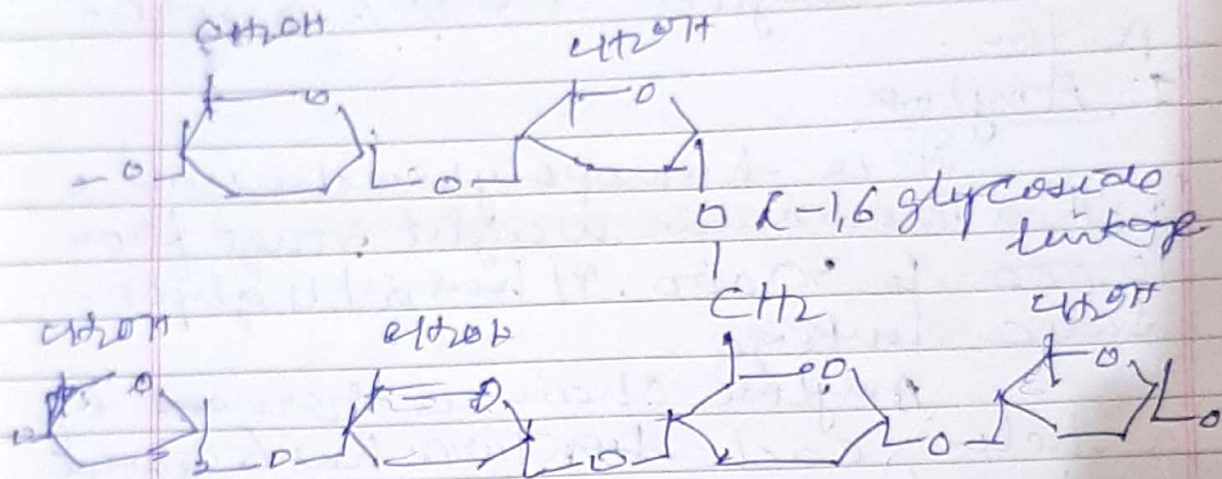 CH2OH CH2OH
O O
- O O
O α-1,6 glycoside
linkage
CH2
CH2OH CH2OH CH2OH
O O O O
O O O O O